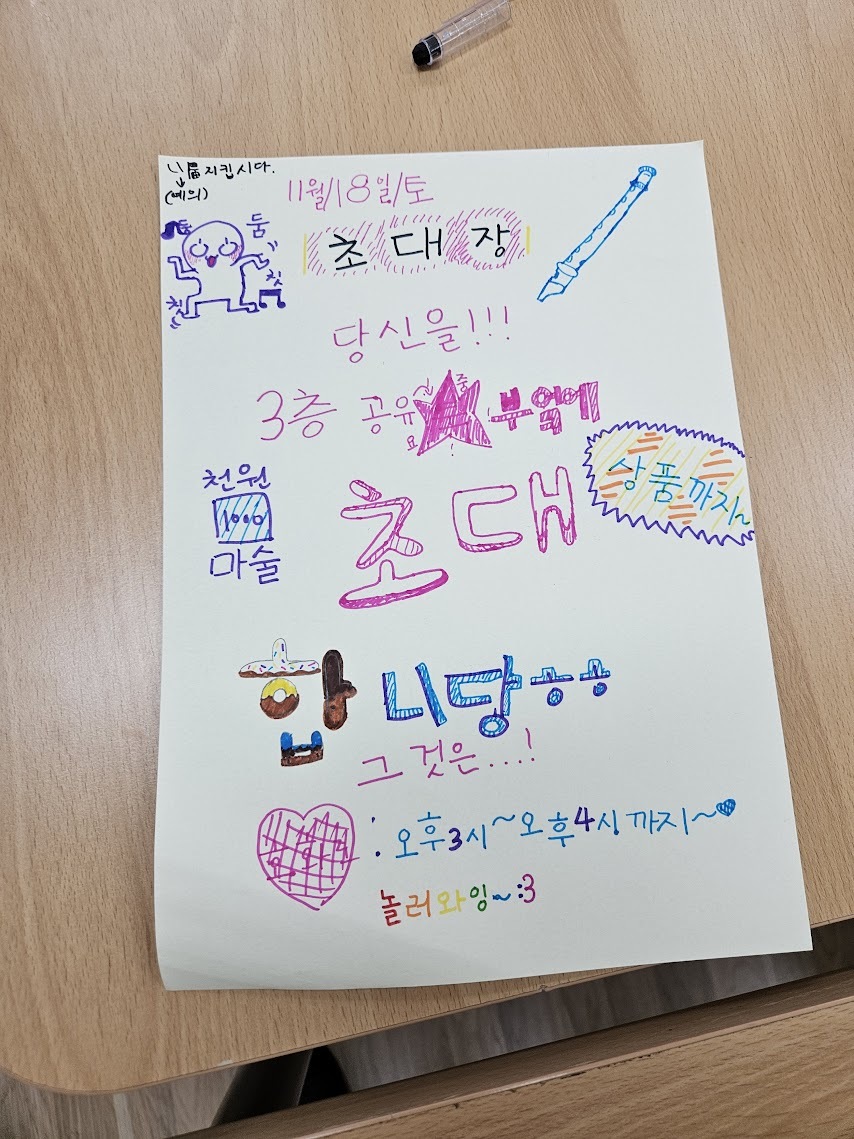 지킵시다.
(예의)
11월/18일/토
둠
칫
칫
초대장
당신을!!!
3층 공유 부엌에
중
요
!
천원
1000
마술
초대
상품까지~
합니당ㅎㅎ
그것은...!
: 오후3시~오후4시까지~♥
놀러와잉~:3